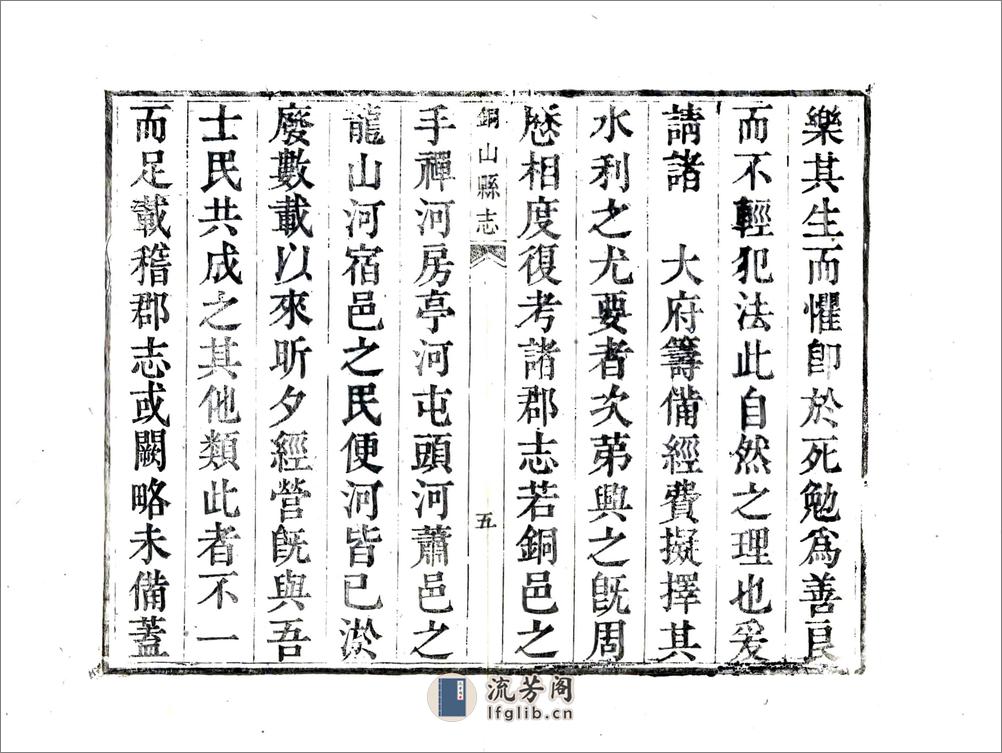 樂其生而懼卽於死勉爲善良
而不輕犯法此自然之理也爰
請諸　大府籌備經費擬擇其
水利之尤要者次第興之旣周
厯相度復考諸郡志若銅邑之
銅山縣志
五
手禪河房亭河屯頭河蕭邑之
龍山河宿邑之民便河皆已淤
廢數載以來昕夕經營旣與吾
士民共成之其他類此者不一
而足載稽郡志或闕略未備蓋
流芳阁
lfglib.cn